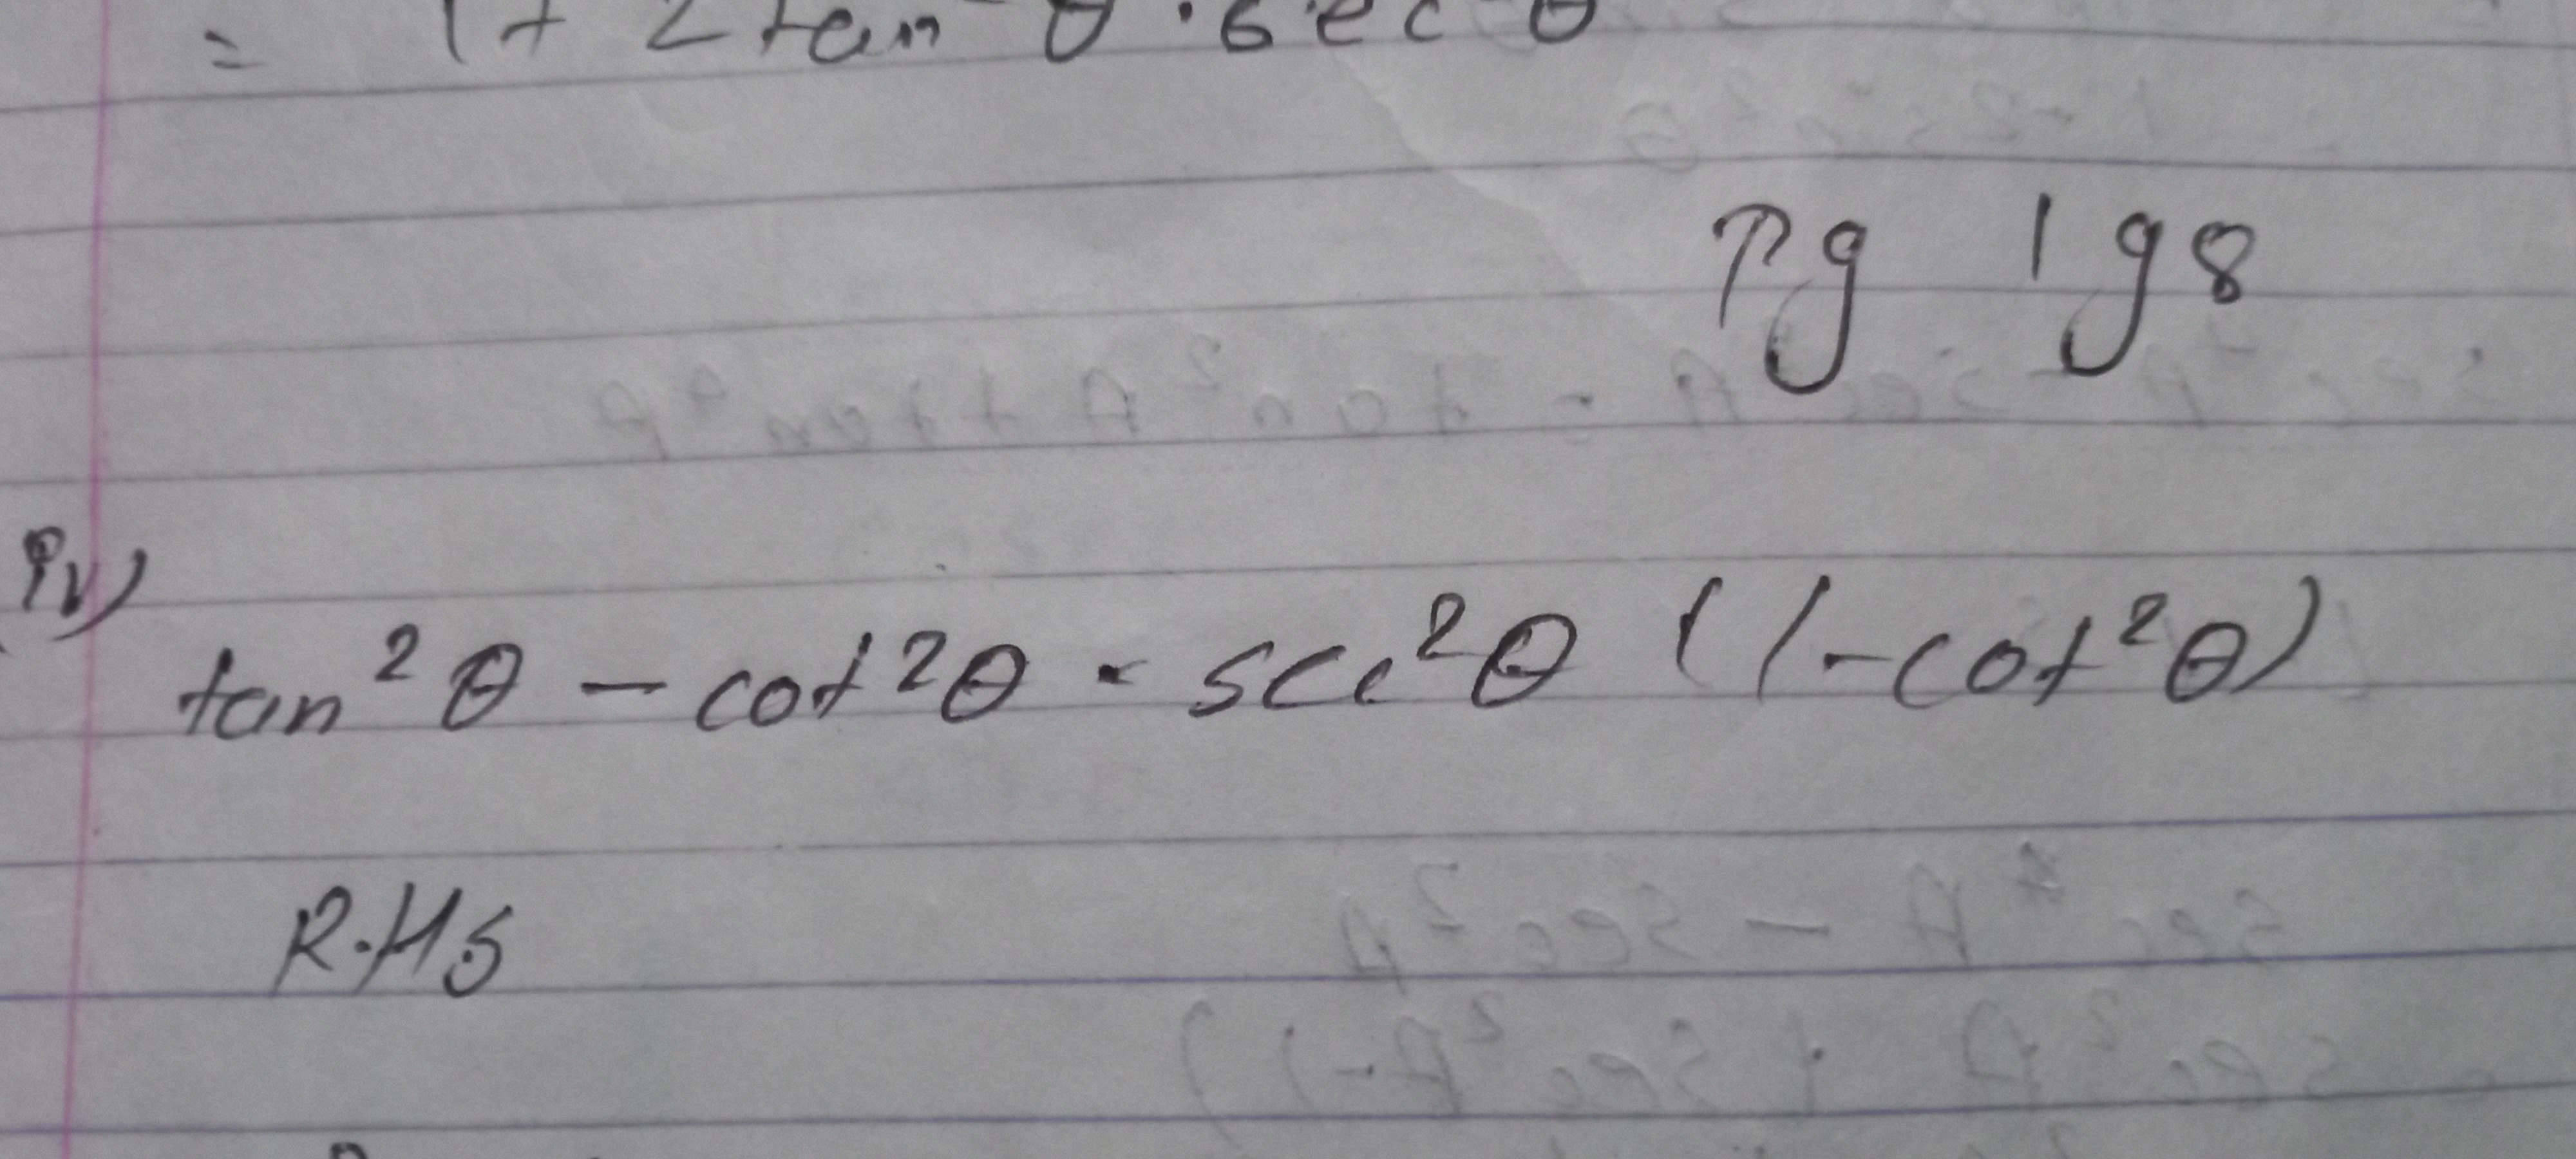 = 1 + 2 tan θ . sec θ
Pg 198
iv)
tan²θ - cot²θ = sec²θ (1-cot²θ)
R.HS